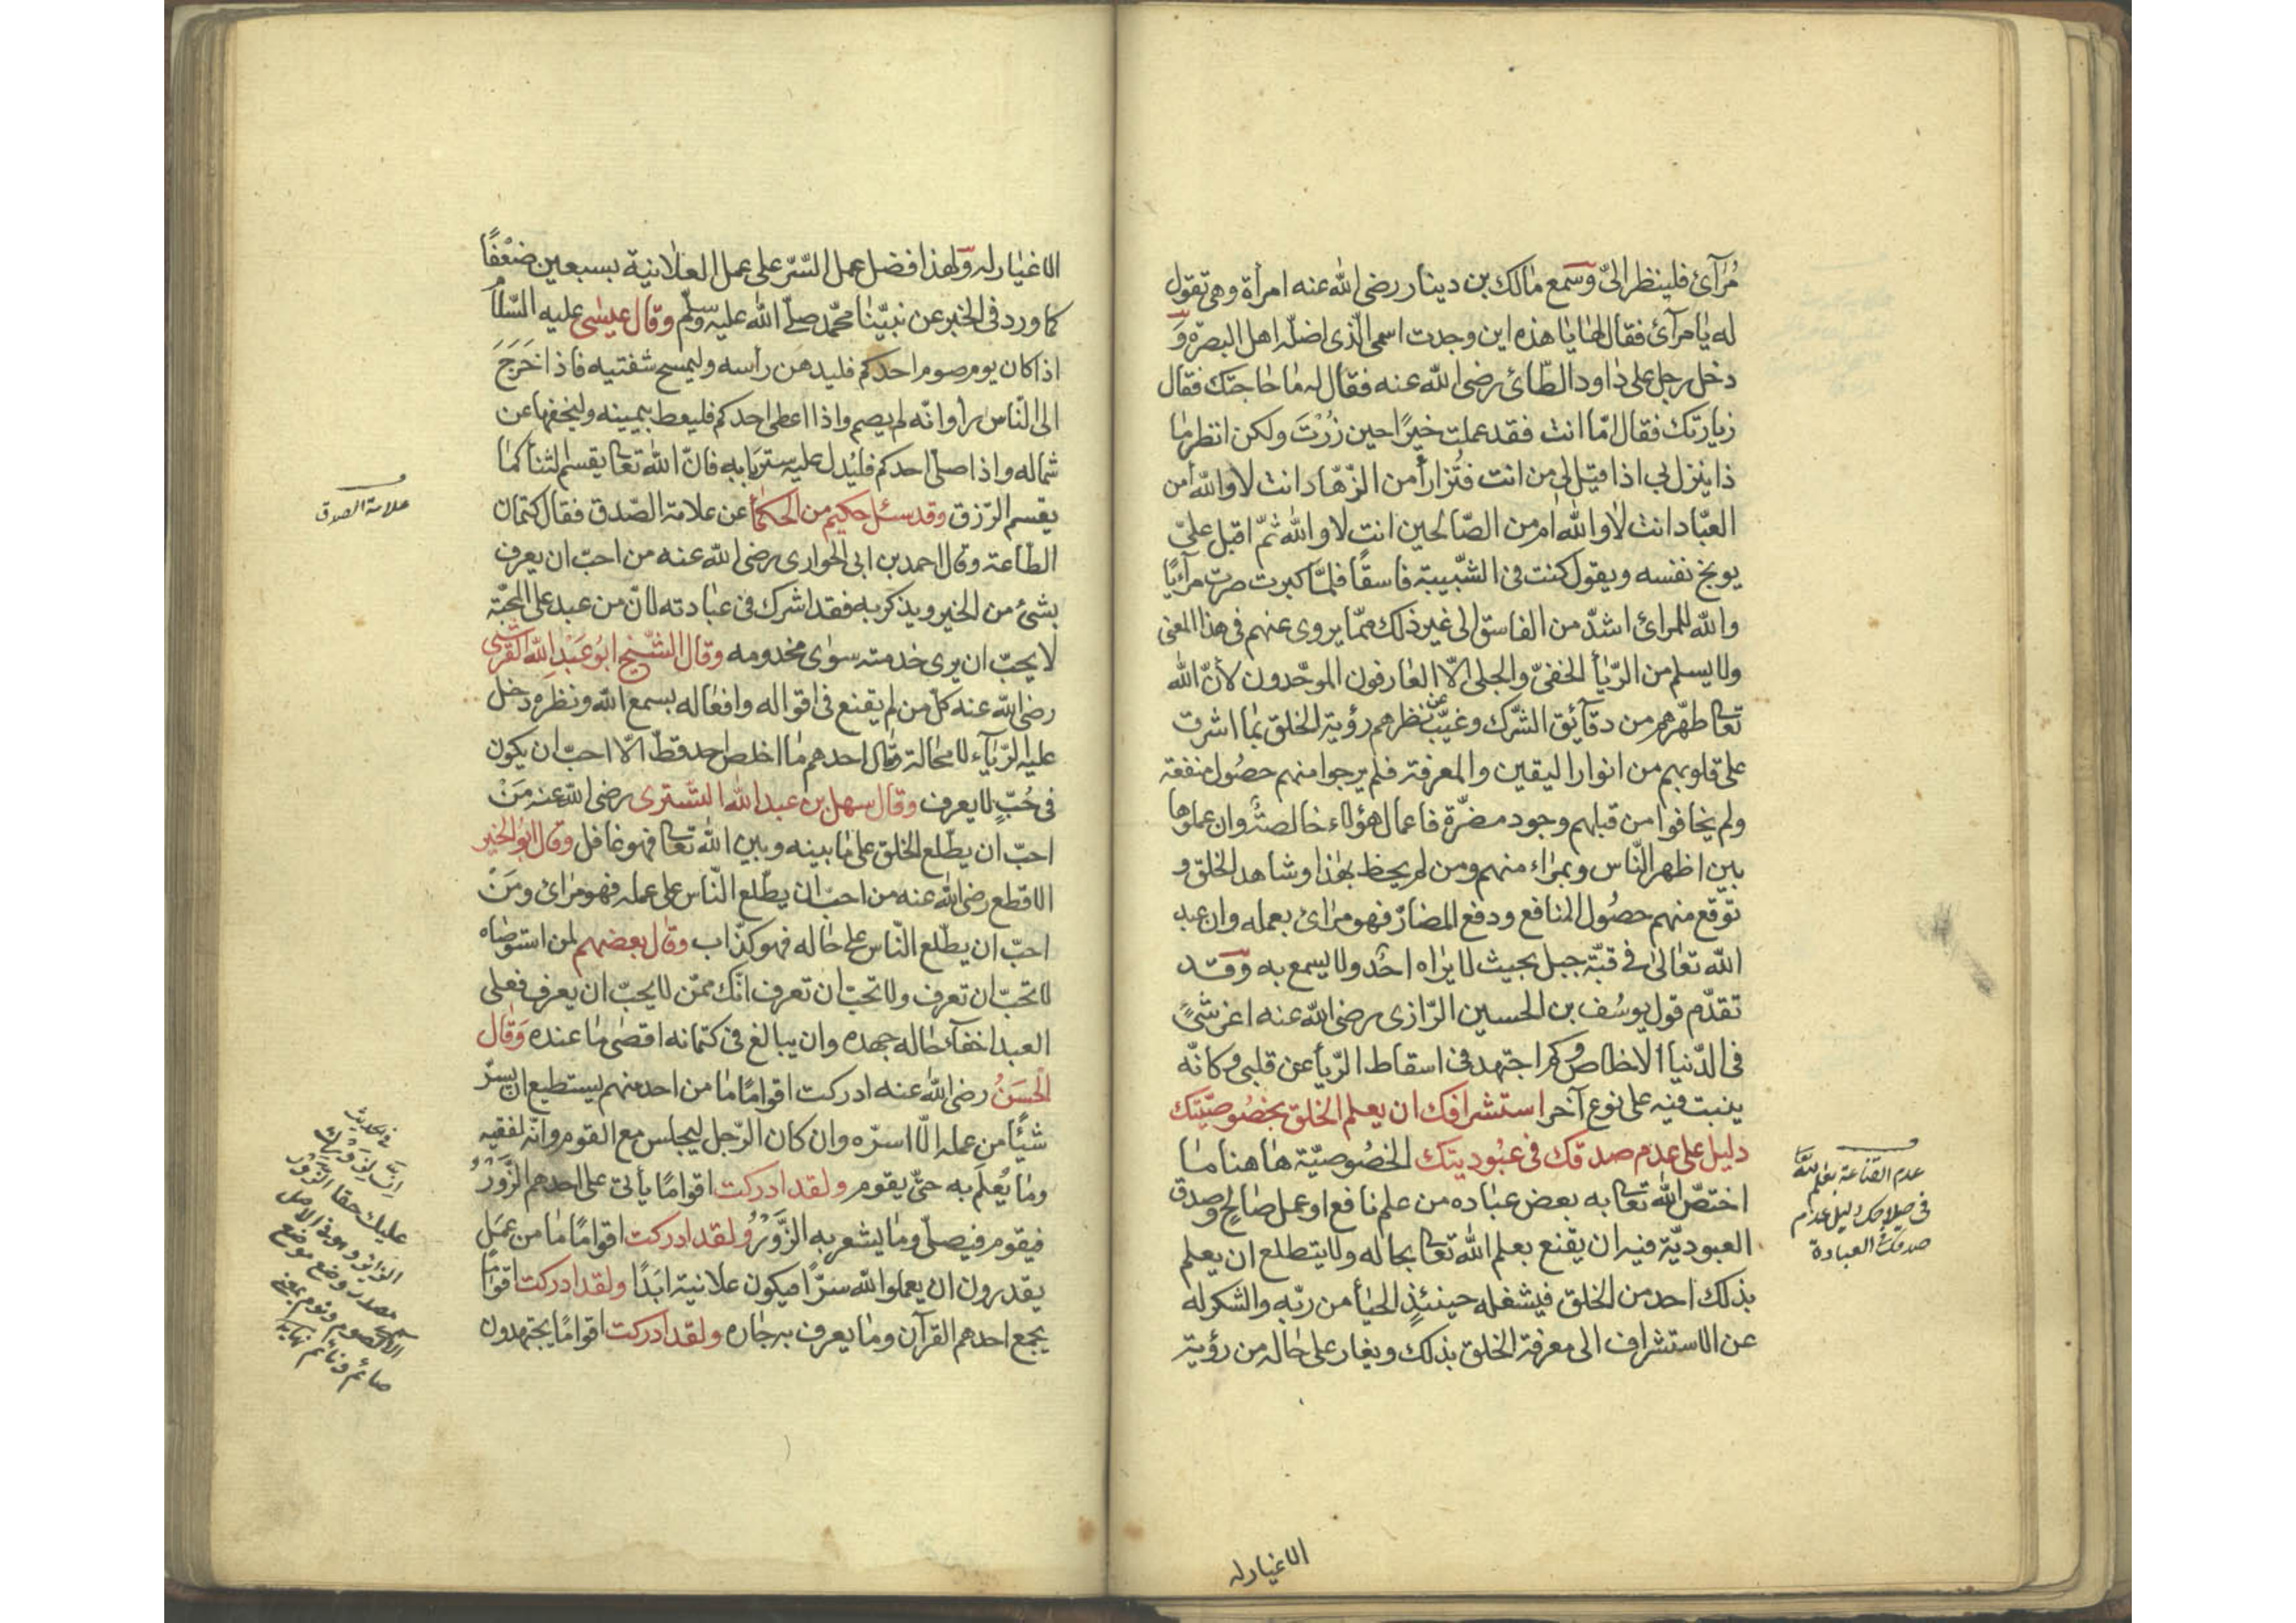 مُرآئ فلينظر الىّ وسمع مالك بن دينار رضى الله عنه امرأة وهى تقول
له يا مرآئ فقال لها يا هذه اين وجدت اسمى الّذى اضلّه اهل البصرة وَ
دخل رجل على داود الطّائ رضى الله عنه فقال له ما حاجتك فقال
زيارتك فقال امّا انت فقد عملت خيرًا حين زُرْتَ ولكن انظر ما
ذا ينزل بى اذا قيل لى من انت فتُزار أمن الزّهّاد انت لا والله أمن
العبّاد انت لا والله ام من الصّالحين انت لا والله ثمّ اقبل على
يوبخ نفسه ويقول كنت فى الشّبيبة فاسقًا فلمّا كبرت صرت مرآئيًا
والله للمرائ اشدّ من الفاسق الى غير ذلك ممّا يروى عنهم فى هذا المعنى
ولا يسلم من الرّيأ الخفىّ والجلى الّا العارفون الموحّدون لأنّ الله
تعالى طهّرهم من دقآئق الشّرك وغيّب عن نظرهم رؤية الخلق بما اشرق
على قلوبهم من انوار اليقين والمعرفة فلم يرجوا منهم حصُول منفعة
ولم يخافوا من قبلهم وجود مضرّة فاعمال هؤلاء خالصة وان عملوها
بين اظهر النّاس وبمراء منهم ومن لم يحظ بهذا وشاهد الخلق و
توقع منهم حصُول المنافع ودفع المضارّ فهو مرائ بعمله وان عبد
الله تعالى فى قبّة جبل بحيث لا يراه احد ولا يسمع به وقد
تقدّم قول يوسُف بن الحسين الرّازى رضى الله عنه اعز شئ
فى الدّنيا الاخلاص وكم اجتهد فى اسقاط الرّيأ عن قلبى وكانّه
ينبت فيه على نوع آخر استشرافك ان يعلم الخلق بخصُوصيّتك
دليل على عدم صدقك فى عبُوديتك الخصُوصيّة هاهنا ما
اختصّ الله تعالى به بعض عباده من علم نافع او عمل صالح وصدق
العبوديّة فيه ان يقنع بعلم الله تعالى بحاله ولا يتطلع ان يعلم
بذلك احد من الخلق فيشغله حينئذٍ الحيأ من ربّه والشكر له
عن الاستشراف الى معرفة الخلق بذلك ويغار على حاله من رؤية
عدم القناعة بعلم الله
فى صلاحك دليل عدم
صدقك العبادة
الاغيار له
الاغيار له ولهذا فضل عمل السّرّ على عمل العلانية بسبعين ضعْفًا
كما ورد فى الخبر عن نبيّنا محمّد صلّى الله عليه وسلّم وقال عيسى عليه السّلام
اذا كان يوم صوم احدكم فليدهن رأسه وليمسح شفتيه فاذا خَرَجَ
الى النّاس رأوا انّه لم يصم واذا اعطى احدكم فليعط بيمينه وليخفها عن
شماله واذا صلّى احدكم فليُدل عليه ستر بابه فانّ الله تعالى يقسم الثنأ كما
يقسم الرّزق وقد سئل حكيم من الحكمأ عن علامة الصّدق فقال كتمان
الطّاعة وقال احمد بن ابى الحوارى رضى الله عنه من احبّ ان يعرف
بشئ من الخير ويذكر به فقد اشرك فى عبادته لانّ من عبد على المحبّة
لا يحبّ ان يرى خدمته سوى مخدومه وقال الشّيخ ابُو عَبْدِ الله القرشى
رضى الله عنه كلّ من لم يقنع فى اقواله وافعاله بسمع الله ونظره دخل
عليه الرّيآء لا محالة وقال احدهم ما اخلص احد قطّ الّا احبّ ان يكون
فى جُبّ لا يعرف وقال سهل بن عبد الله التّسترى رضى الله عنه مَنْ
احبّ ان يطّلع الخلق على ما بينه وبين الله تعالى فهو غافل وقال ابو الخير
الاقطع رضى الله عنه من احبّ ان يطّلع النّاس على عمله فهو مرائ ومَنْ
احبّ ان يطّلع النّاس على حاله فهو كذّاب وقال بعضهم لمن استوصاه
لا تحبّ ان تعرف ولا تحبّ ان تعرف انّك ممّن لا يحبّ ان يعرف فعلى
العبد اخفآء حاله جهده وان يبالغ فى كتمانه اقصٰى ما عنده وَقَال
الْحَسَنُ رضى الله عنه ادركت اقوامًا ما من احد منهم يستطيع ان يسرّ
شيًأ من عمله الّا اسرّه وان كان الرّجل ليجلس مع القوم وانّه لفقيه
وما يُعْلَم به حتّى يقوم ولقد ادركت اقوامًا يأتى على احدهم الزَّوْرُ
فيقوم فيصلّى وما يشعر به الزَّوْرُ ولقد ادركت اقوامًا ما من عمَل
يقدرون ان يعملوا لله سرّا فيكون علانية ابَدًا ولقد ادركت اقوامًا
يجمع احدهم القرآن وما يعرف به جاره ولقد ادركت اقوامًا يجتهدون
علامة الصدق
فى الحديث
ان لزورك
عليك حقا الزور
الزائر وهو فى الاصل
مصدر وضع موضع
الاسم كصوم ونوم بمعنى
صائم ونائم نهاية